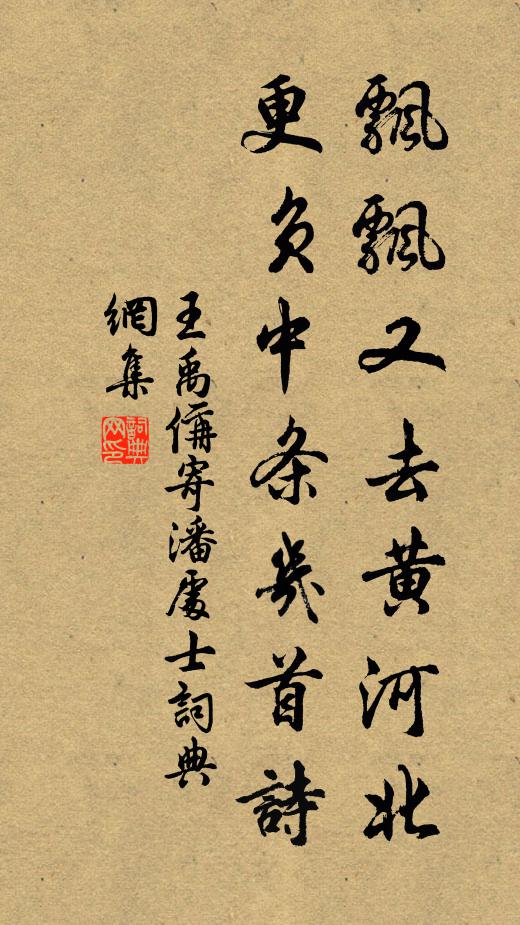 飄飄又去黄河北
更負中条幾首詩
王禹偁寄潘處士詞典
網集
詞典
網印